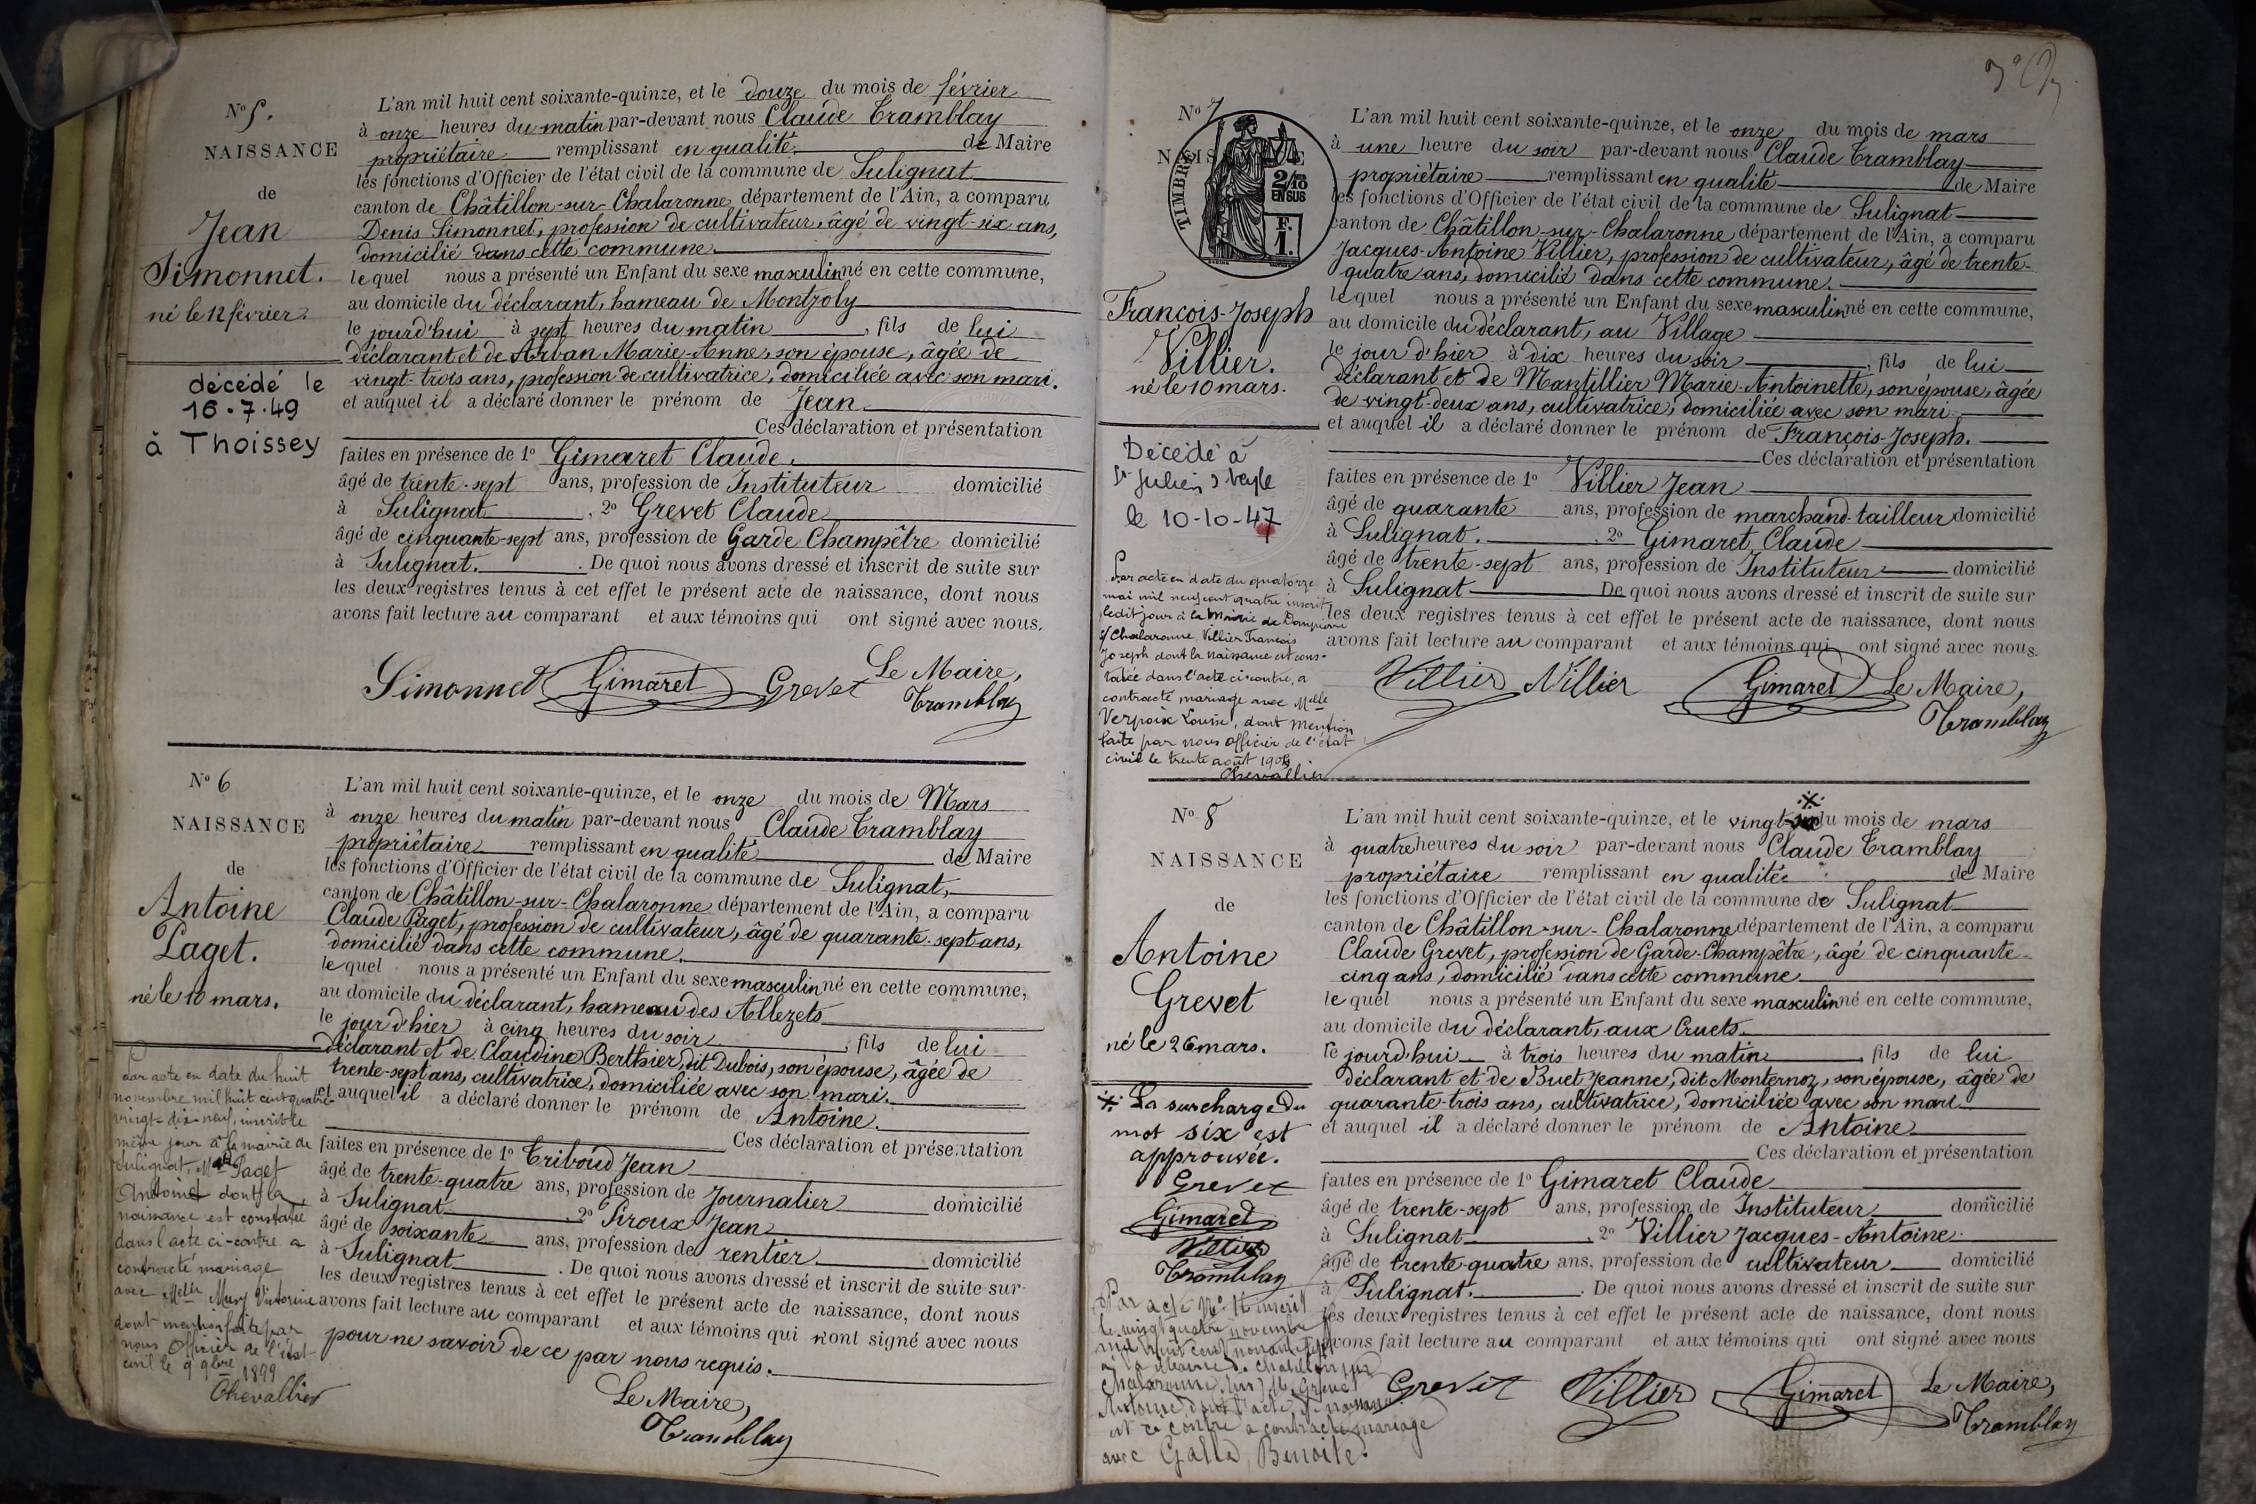 N° 5.
NAISSANCE
de
Jean
Simonnet.
né le 12 février.
décédé le
16.7.49
à Thoissey
L'an mil huit cent soixante-quinze, et le douze du mois de février
à onze heures du matin par-devant nous Claude Tramblay
propriétaire remplissant en qualité de Maire
les fonctions d'Officier de l'état civil de la commune de Sulignat
canton de Châtillon-sur-Chalaronne département de l'Ain, a comparu
Denis Simonnet, profession de cultivateur, âgé de vingt-six ans,
domicilié dans cette commune.
lequel nous a présenté un Enfant du sexe masculin né en cette commune,
au domicile du déclarant, hameau de Montzoly
le jourd'hui à sept heures du matin, fils de lui
déclarant et de Arban Marie-Anne, son épouse, âgée de
vingt-trois ans, profession de cultivatrice, domiciliée avec son mari.
et auquel il a déclaré donner le prénom de Jean
Ces déclaration et présentation
faites en présence de 1° Gimaret Claude,
âgé de trente-sept ans, profession de Instituteur domicilié
à Sulignat, 2° Grevet Claude
âgé de cinquante-sept ans, profession de Garde Champêtre domicilié
à Sulignat. De quoi nous avons dressé et inscrit de suite sur
les deux registres tenus à cet effet le présent acte de naissance, dont nous
avons fait lecture au comparant et aux témoins qui ont signé avec nous.
Simonnet Gimaret Grevet Le Maire,
Tramblay
N° 6
NAISSANCE
de
Antoine
Paget.
né le 10 mars.
Par acte en date du huit
novembre mil huit cent quatre-
vingt-dix-neuf, inscrit le
même jour à la mairie de
Sulignat, Mr Paget
Antoine dont la
naissance est constatée
dans l'acte ci-contre a
contracté mariage
avec Melle Mury Victorine
dont mention faite par
nous Officier de l'état
civil le 9 9bre 1899
Chevallier
L'an mil huit cent soixante-quinze, et le onze du mois de Mars
à onze heures du matin par-devant nous Claude Tramblay
propriétaire remplissant en qualité de Maire
les fonctions d'Officier de l'état civil de la commune de Sulignat,
canton de Châtillon-sur-Chalaronne département de l'Ain, a comparu
Claude Paget, profession de cultivateur, âgé de quarante-sept ans,
domicilié dans cette commune.
lequel nous a présenté un Enfant du sexe masculin né en cette commune,
au domicile du déclarant, hameau des Allezets
le jour d'hier à cinq heures du soir, fils de lui
déclarant et de Claudine Berthier, dit Dubois, son épouse, âgée de
trente-sept ans, cultivatrice, domiciliée avec son mari.
et auquel il a déclaré donner le prénom de Antoine.
Ces déclaration et présentation
faites en présence de 1° Triboud Jean
âgé de trente-quatre ans, profession de Journalier domicilié
à Sulignat, 2° Piroux Jean
âgé de soixante ans, profession de rentier domicilié
à Sulignat. De quoi nous avons dressé et inscrit de suite sur
les deux registres tenus à cet effet le présent acte de naissance, dont nous
avons fait lecture au comparant et aux témoins qui n'ont signé avec nous
pour ne savoir de ce par nous requis.
Le Maire,
Tramblay
N° 7
NAISSANCE
TIMBRE
2/10 EN SUS
F. 1.
François-Joseph
Villier.
né le 10 mars.
Décédé à
St Julien s Veyle
le 10-10-47
Par acte en date du quatorze
mai mil neuf cent quatre inscrit
ledit jour à la Mairie de Dompierre
s/ Chalaronne, Villier François
Joseph dont la naissance est cons-
tatée dans l'acte ci contre, a
contracté mariage avec Melle
Verpoix Louise, dont Mention
faite par nous officier de l'état
civil le trente août 1904
Chevallier
L'an mil huit cent soixante-quinze, et le onze du mois de mars
à une heure du soir par-devant nous Claude Tramblay
propriétaire remplissant en qualité de Maire
les fonctions d'Officier de l'état civil de la commune de Sulignat
canton de Châtillon-sur-Chalaronne département de l'Ain, a comparu
Jacques-Antoine Villier, profession de cultivateur, âgé de trente-
quatre ans, domicilié dans cette commune.
lequel nous a présenté un Enfant du sexe masculin né en cette commune,
au domicile du déclarant, au Village
le jour d'hier à dix heures du soir, fils de lui
déclarant et de Mantillier Marie-Antoinette, son épouse, âgée
de vingt-deux ans, cultivatrice, domiciliée avec son mari
et auquel il a déclaré donner le prénom de François-Joseph.
Ces déclaration et présentation
faites en présence de 1° Villier Jean
âgé de quarante ans, profession de marchand-tailleur domicilié
à Sulignat. 2° Gimaret Claude
âgé de trente-sept ans, profession de Instituteur domicilié
à Sulignat De quoi nous avons dressé et inscrit de suite sur
les deux registres tenus à cet effet le présent acte de naissance, dont nous
avons fait lecture au comparant et aux témoins qui ont signé avec nous.
Villier Villier Gimaret Le Maire,
Tramblay
N° 8
NAISSANCE
de
Antoine
Grevet
né le 26 mars.
※ La surcharge du
mot six est
approuvée.
Grevet
Gimaret
Villier
Tramblay
Par acte N° inscrit
le vingt quatre novembre
mil huit cent
à la Mairie de Chatillon sur
Chalaronne Mr Grevet
Antoine dont l'acte de naissance
est ci contre a contracté mariage
avec Galla Benoite.
※
L'an mil huit cent soixante-quinze, et le vingt-six du mois de mars
à quatre heures du soir par-devant nous Claude Tramblay
propriétaire remplissant en qualité de Maire
les fonctions d'Officier de l'état civil de la commune de Sulignat
canton de Châtillon-sur-Chalaronne département de l'Ain, a comparu
Claude Grevet, profession de Garde-Champêtre, âgé de cinquante-
cinq ans, domicilié dans cette commune
lequel nous a présenté un Enfant du sexe masculin né en cette commune,
au domicile du déclarant, aux Cruets
le jourd'hui à trois heures du matin, fils de lui
déclarant et de Buet Jeanne, dit Monternoz, son épouse, âgée de
quarante-trois ans, cultivatrice, domiciliée avec son mari
et auquel il a déclaré donner le prénom de Antoine
Ces déclaration et présentation
faites en présence de 1° Gimaret Claude
âgé de trente-sept ans, profession de Instituteur domicilié
à Sulignat, 2° Villier Jacques-Antoine
âgé de trente-quatre ans, profession de cultivateur domicilié
à Sulignat. De quoi nous avons dressé et inscrit de suite sur
les deux registres tenus à cet effet le présent acte de naissance, dont nous
avons fait lecture au comparant et aux témoins qui ont signé avec nous
Grevet Villier Gimaret Le Maire,
Tramblay